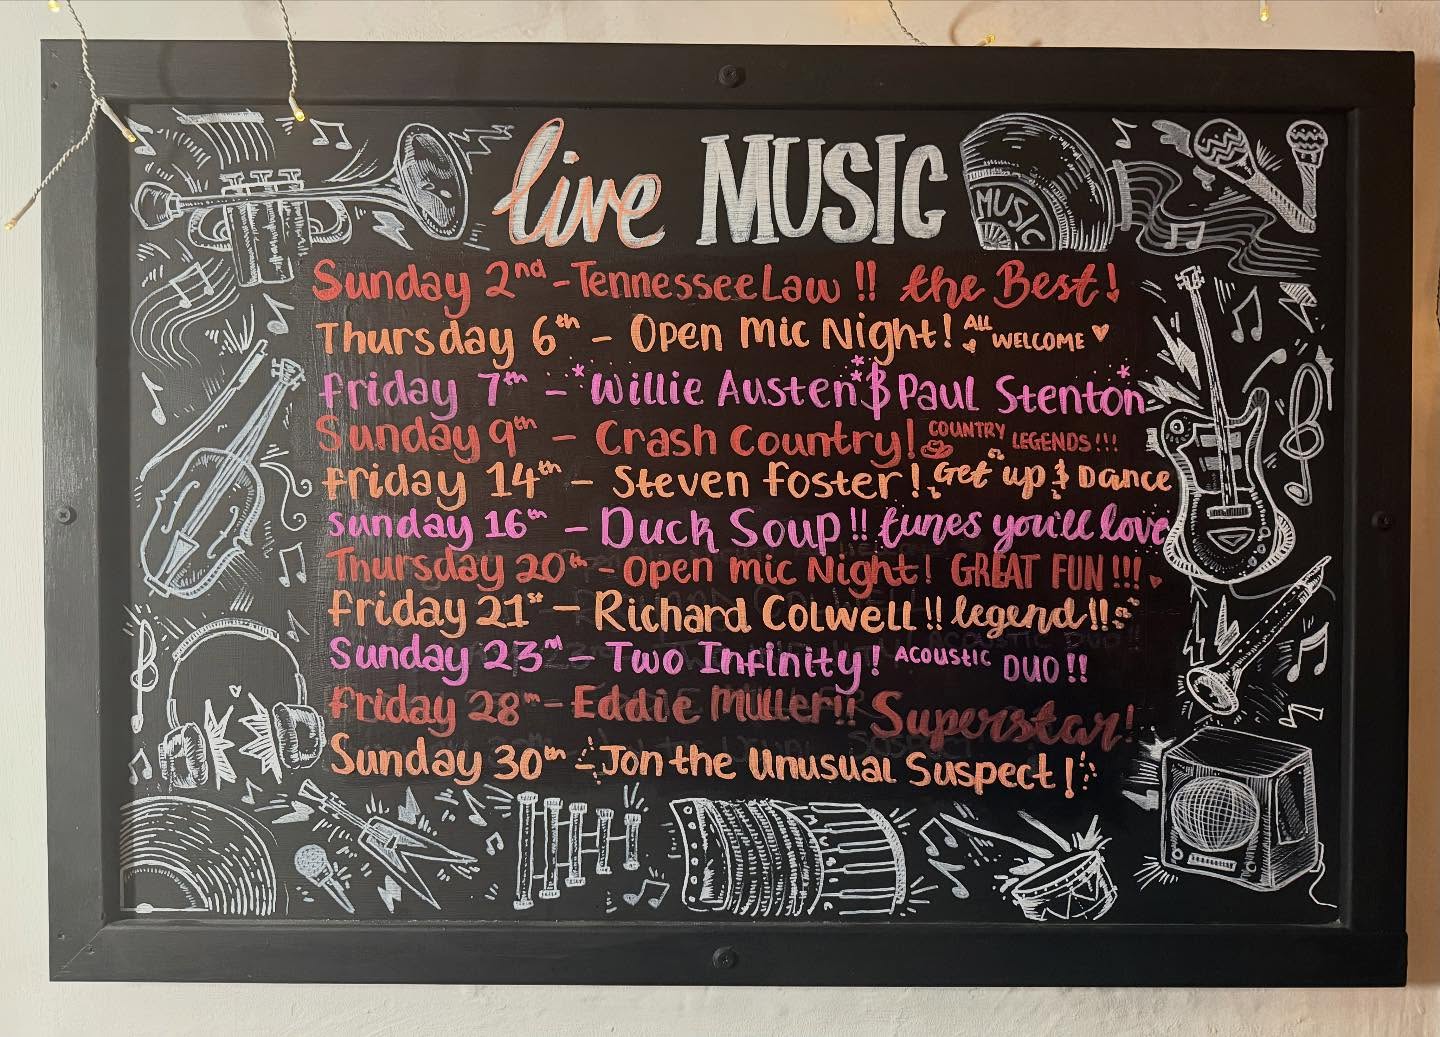 live MUSIC
MUSIC
Sunday 2nd - Tennessee Law !! the Best!
Thursday 6th - Open Mic Night! ALL WELCOME
Friday 7th - Willie Austen & Paul Stenton
Sunday 9th - Crash Country! COUNTRY LEGENDS!!!
Friday 14th - Steven Foster! Get up & Dance
Sunday 16th - Duck Soup!! tunes you'll love
Thursday 20th - Open mic Night! GREAT FUN!!!
Friday 21st - Richard Colwell!! legend!!
Sunday 23rd - Two Infinity! ACOUSTIC DUO!!
Friday 28th - Eddie Muller!! Superstar!
Sunday 30th - Jon the Unusual Suspect!